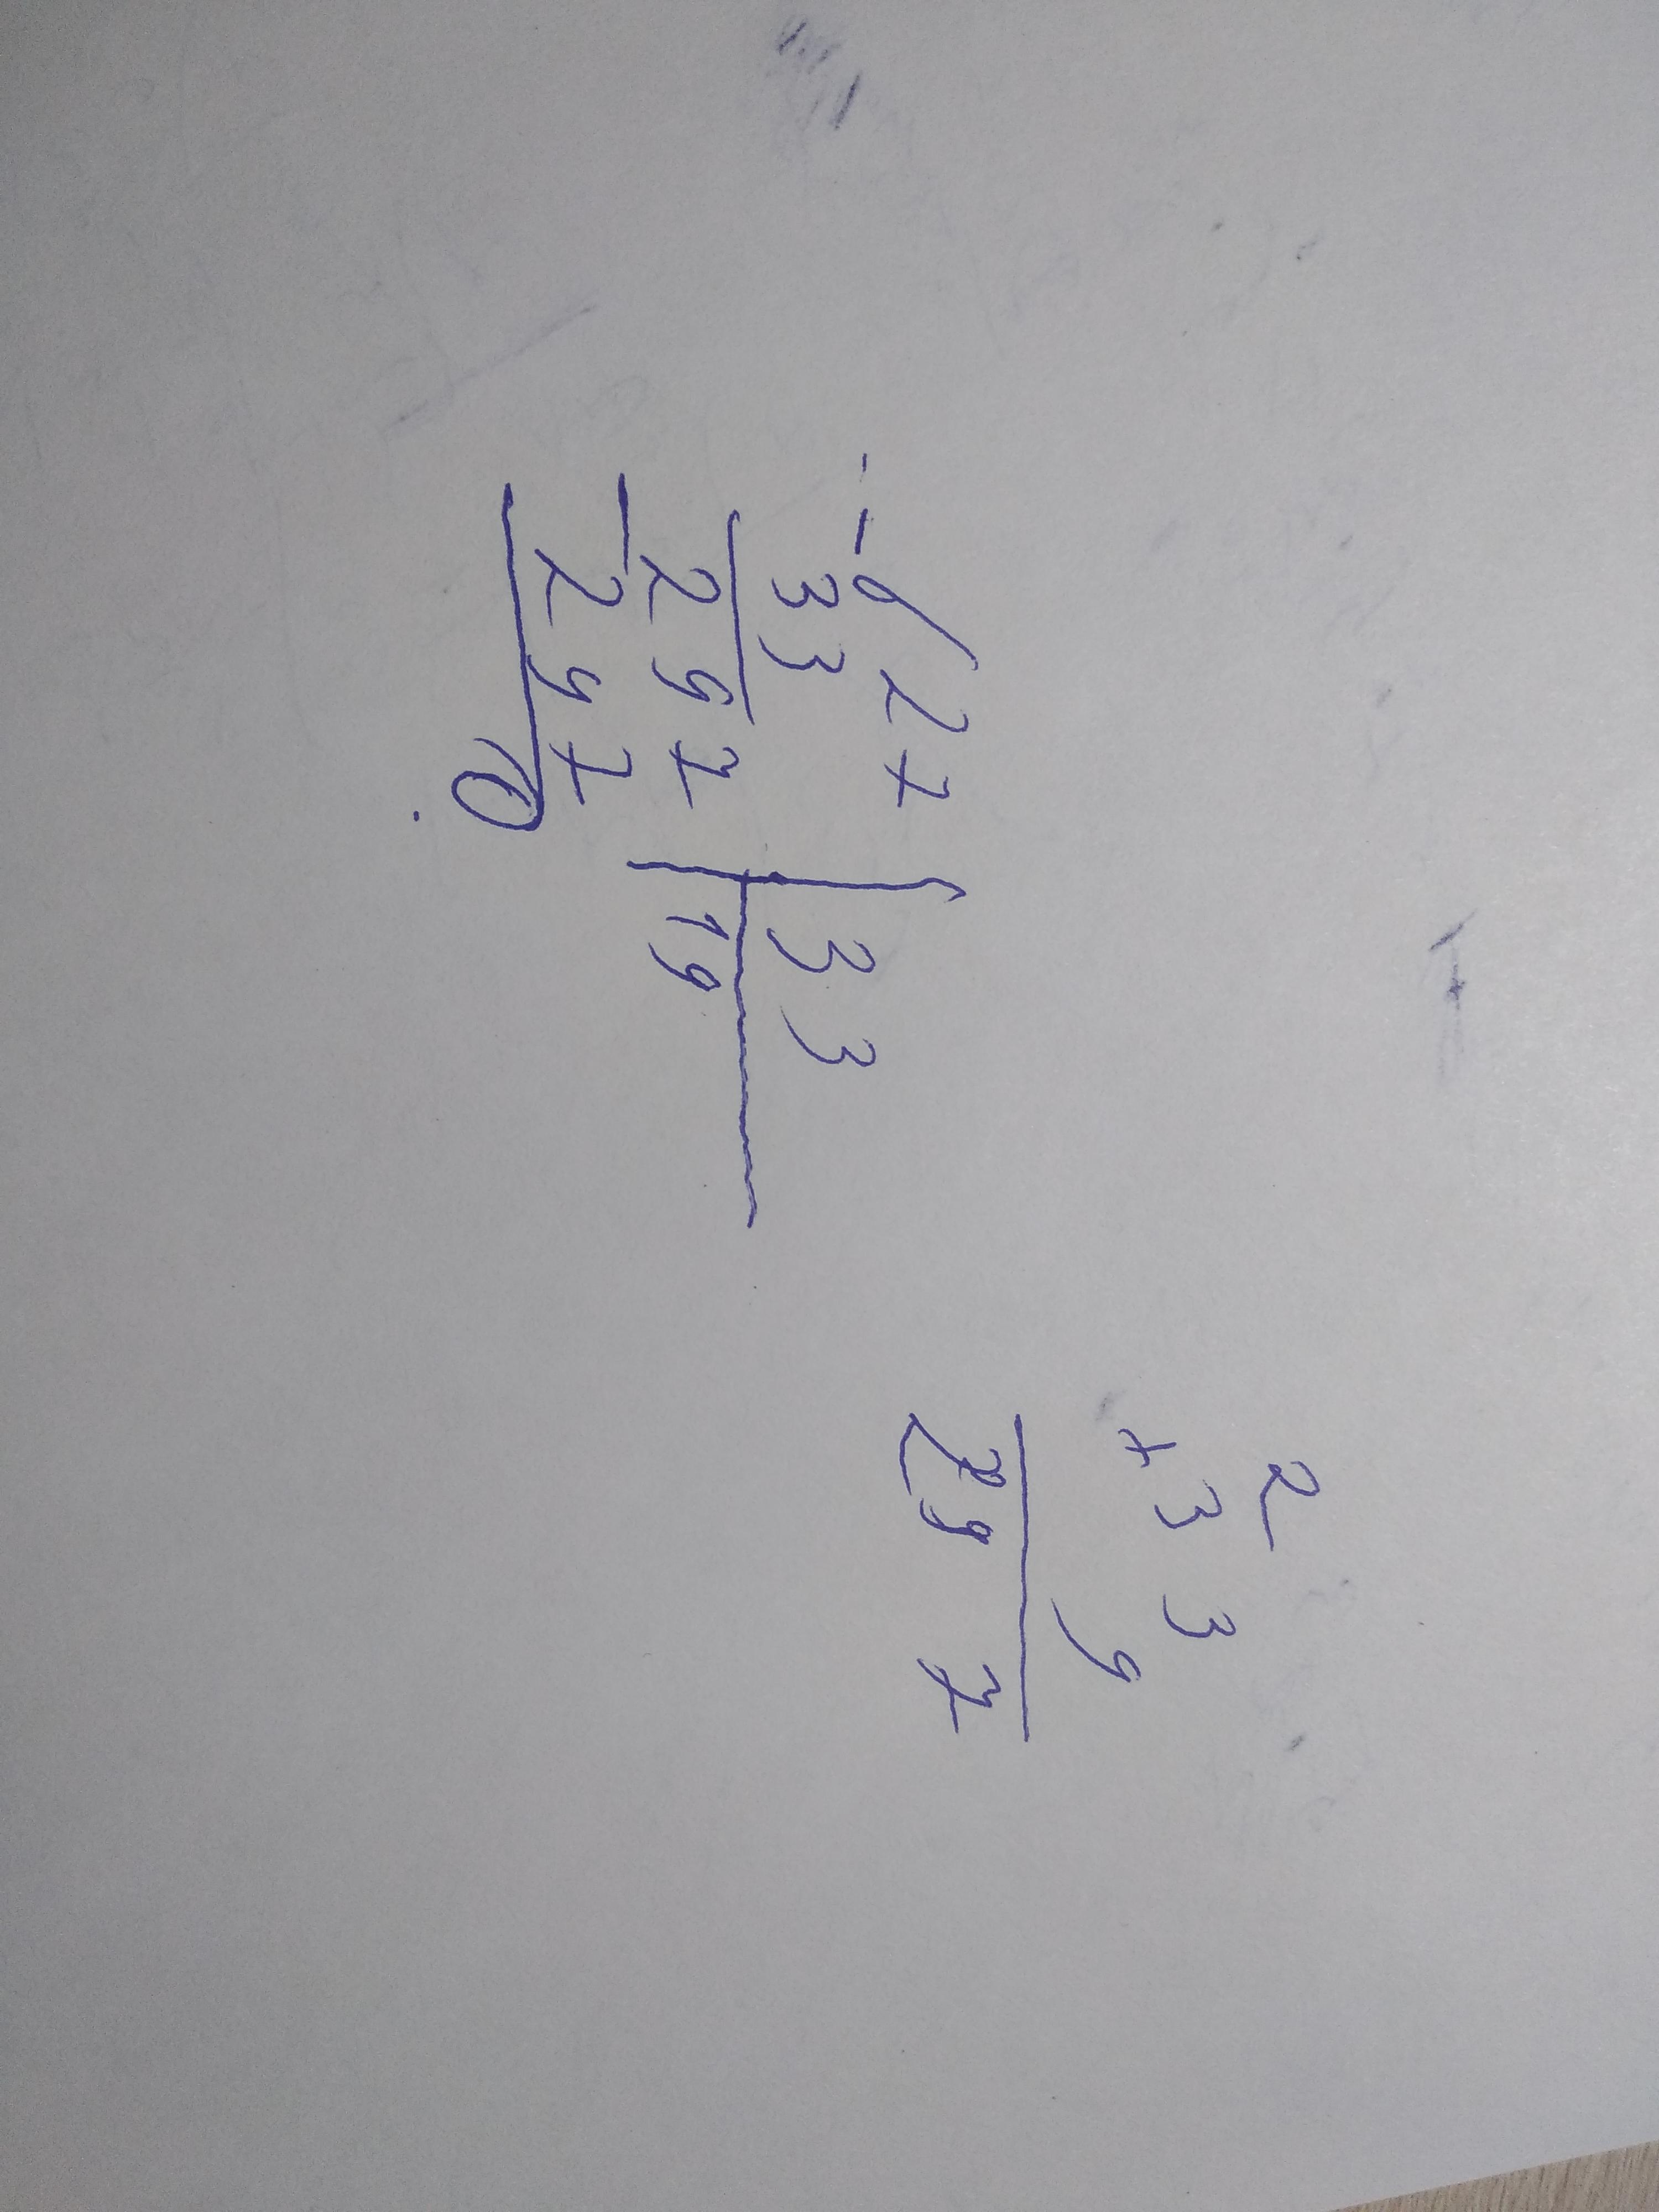 - 627 | 33
33 | 19
297
- 297
0
2
× 33
9
297